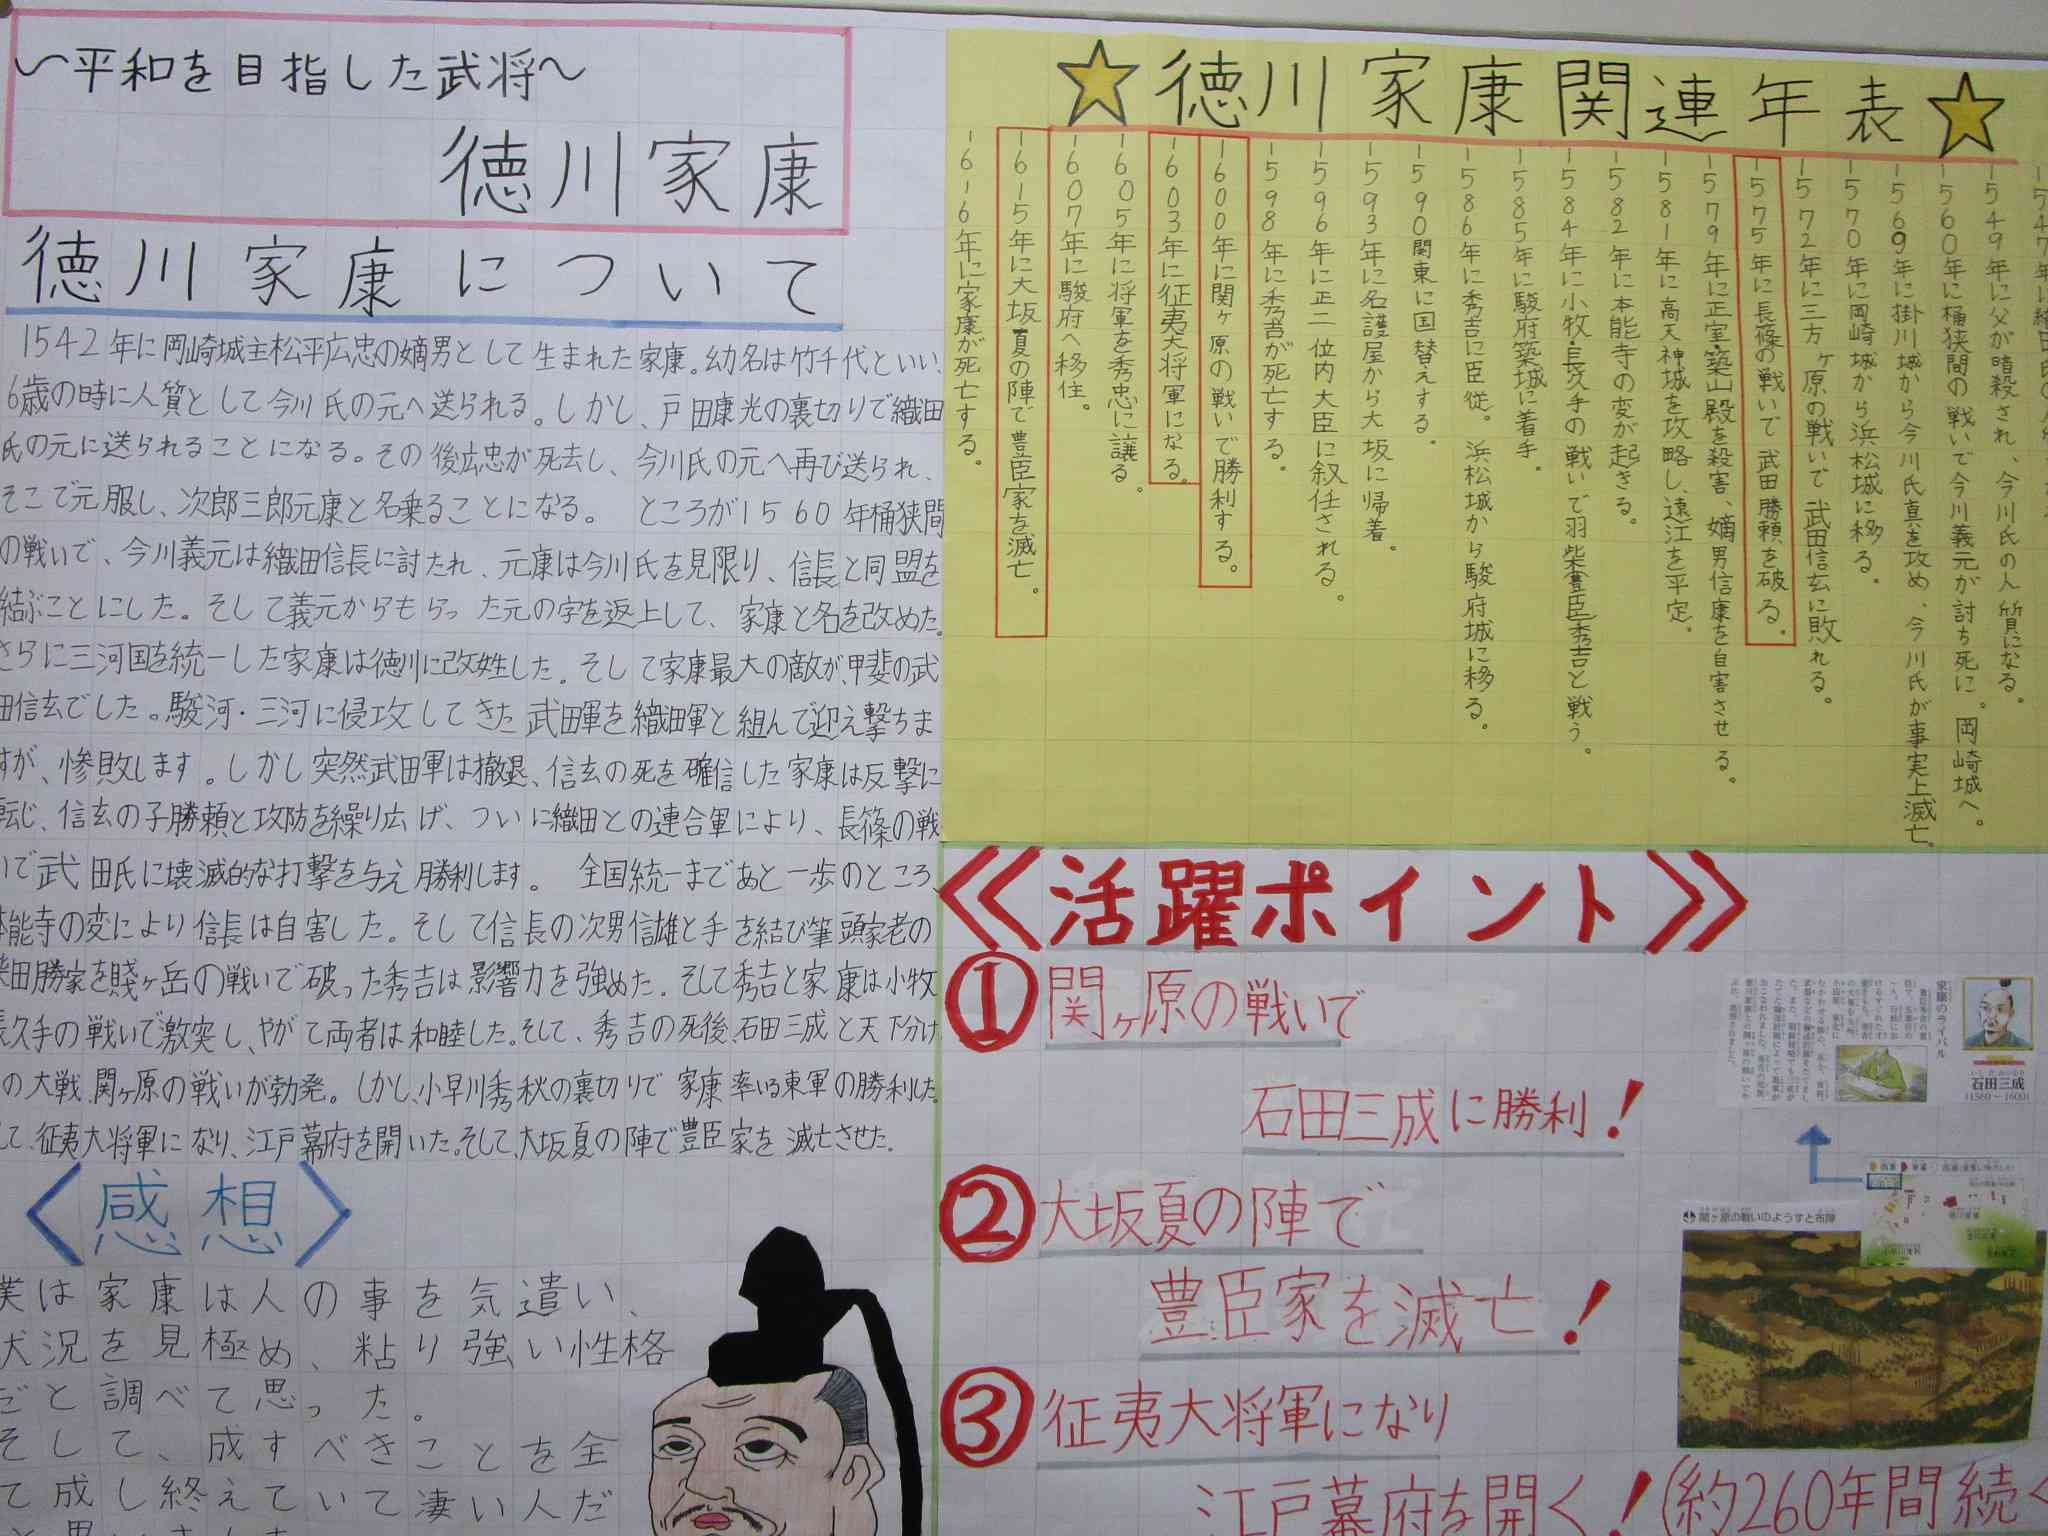 ～平和を目指した武将～
徳川家康
徳川家康について
1542年に岡崎城主松平広忠の嫡男として生まれた家康。幼名は竹千代といい、
6歳の時に人質として今川氏の元へ送られる。しかし、戸田康光の裏切りで織田
氏の元に送られることになる。その後広忠が死去し、今川氏の元へ再び送られ、
そこで元服し、次郎三郎元康と名乗ることになる。 ところが1560年桶狭間
の戦いで、今川義元は織田信長に討たれ、元康は今川氏を見限り、信長と同盟を
結ぶことにした。そして義元からもらった元の字を返上して、家康と名を改めた。
さらに三河国を統一した家康は徳川に改姓した。そして家康最大の敵が、甲斐の武
田信玄でした。駿河・三河に侵攻してきた武田軍を織田軍と組んで迎え撃ちま
すが、惨敗します。しかし突然武田軍は撤退、信玄の死を確信した家康は反撃に
転じ、信玄の子勝頼と攻防を繰り広げ、ついに織田との連合軍により、長篠の戦
いで武田氏に壊滅的な打撃を与え勝利します。 全国統一まであと一歩のところ、
本能寺の変により信長は自害した。そして信長の次男信雄と手を結び筆頭家老の
柴田勝家を賤ヶ岳の戦いで破った秀吉は影響力を強めた。そして秀吉と家康は小牧
長久手の戦いで激突し、やがて両者は和睦した。そして、秀吉の死後、石田三成と天下分け
の大戦、関ヶ原の戦いが勃発。しかし、小早川秀秋の裏切りで家康率いる東軍の勝利した。
して、征夷大将軍になり、江戸幕府を開いた。そして、大坂夏の陣で豊臣家を滅亡させた。
〈感想〉
僕は家康は人の事を気遣い、
状況を見極め、粘り強い性格
だと調べて思った。
そして、成すべきことを全
て成し終えていて凄い人だ
と思いました
☆徳川家康関連年表☆
1547年に織田氏の人
1549年に父が暗殺され、今川氏の人質になる。
1560年に桶狭間の戦いで今川義元が討ち死に。岡崎城へ。
1569年に掛川城から今川氏真を攻め、今川氏が事実上滅亡。
1570年に岡崎城から浜松城に移る。
1572年に三方ヶ原の戦いで武田信玄に敗れる。
1575年に長篠の戦いで武田勝頼を破る。
1579年に正室・築山殿を殺害、嫡男信康を自害させる。
1581年に高天神城を攻略し、遠江を平定。
1582年に本能寺の変が起きる。
1584年に小牧・長久手の戦いで羽柴(豊臣)秀吉と戦う。
1585年に駿府築城に着手。
1586年に秀吉に臣従。浜松城から駿府城に移る。
1590関東に国替えする。
1593年に名護屋から大坂に帰着。
1596年に正二位内大臣に叙任される。
1598年に秀吉が死亡する。
1600年に関ヶ原の戦いで勝利する。
1603年に征夷大将軍になる。
1605年に将軍を秀忠に譲る。
1607年に駿府へ移住。
1615年に大坂夏の陣で豊臣家を滅亡。
1616年に家康が死亡する。
《活躍ポイント》
①関ヶ原の戦いで
石田三成に勝利！
②大坂夏の陣で
豊臣家を滅亡！
③征夷大将軍になり
江戸幕府を開く！(約260年間続く
家康のライバル
石田三成
(1560～1600)
関ヶ原の戦いのようすと布陣